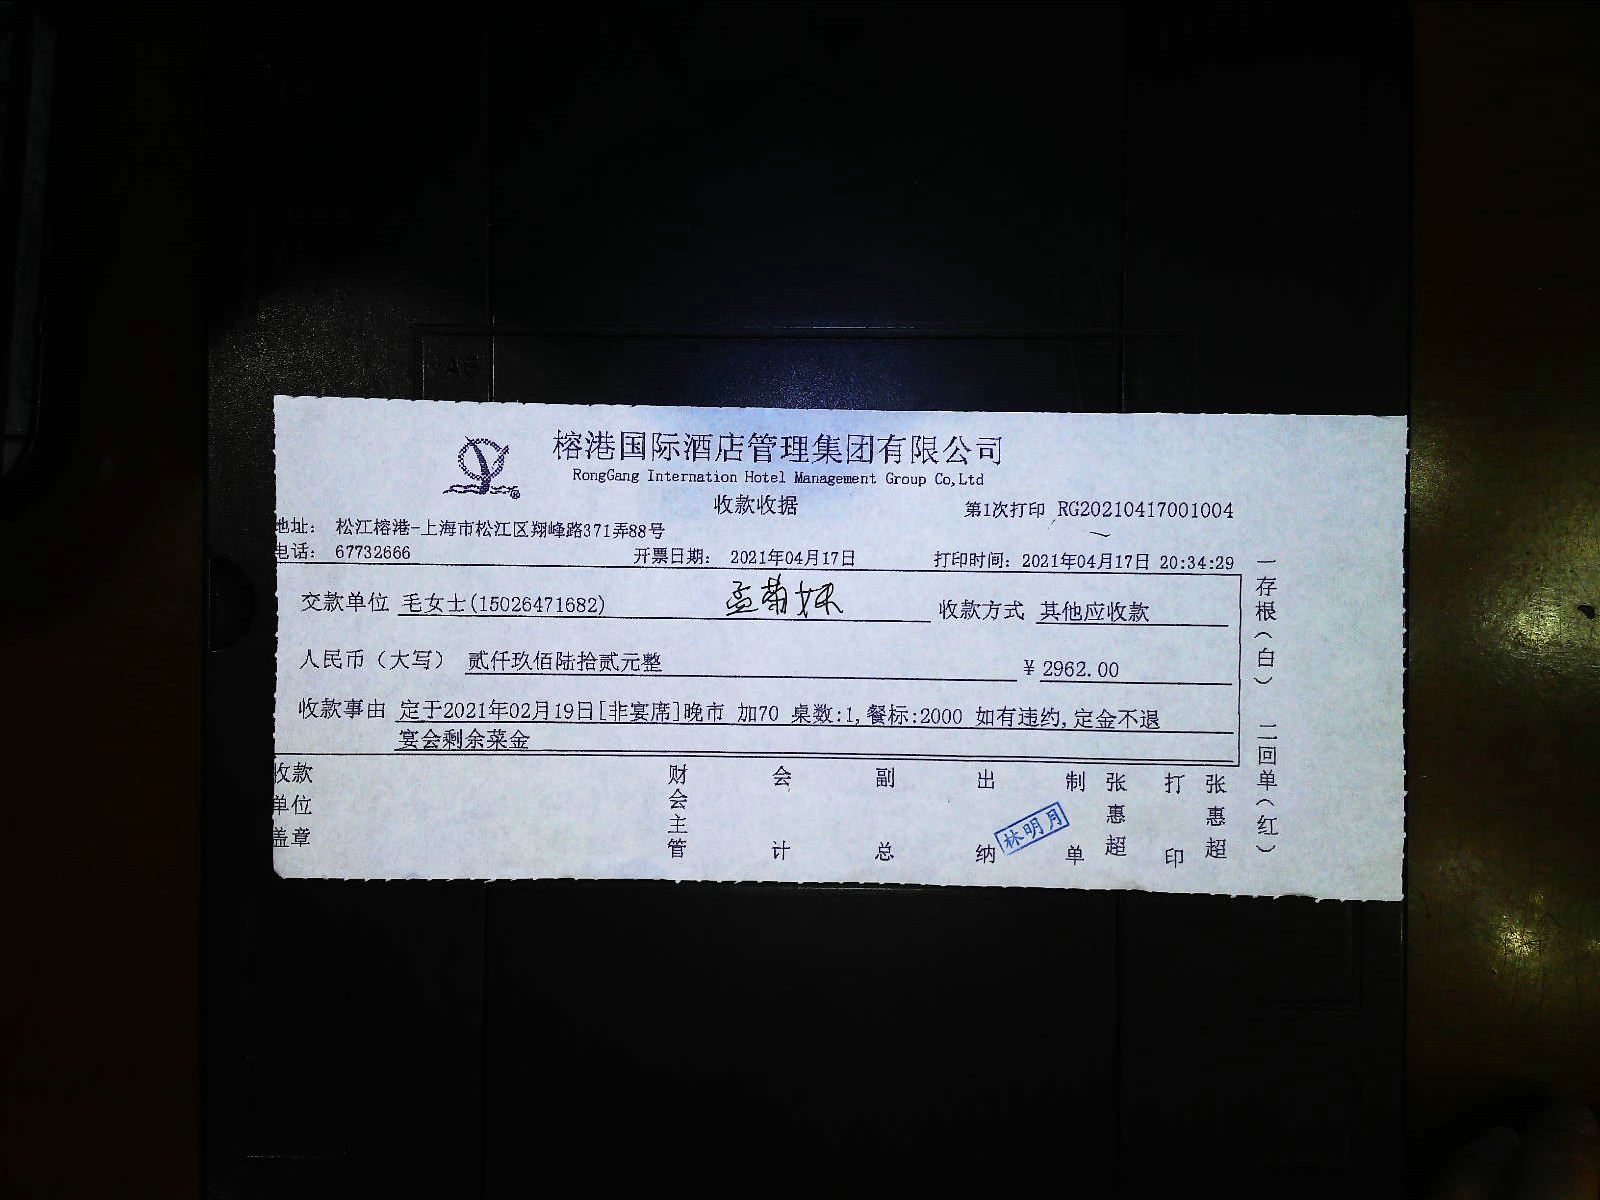 榕港国际酒店管理集团有限公司
RongGang Internation Hotel Management Group Co,Ltd
收款收据 第1次打印 RG20210417001004
地址： 松江榕港-上海市松江区翔峰路371弄88号
电话： 67732666 开票日期： 2021年04月17日 打印时间：2021年04月17日 20:34:29
交款单位 毛女士(15026471682) 孟菊妹 收款方式 其他应收款
人民币（大写） 贰仟玖佰陆拾贰元整 ￥2962.00
收款事由 定于2021年02月19日[非宴席]晚市 加70 桌数:1,餐标:2000 如有违约,定金不退
宴会剩余菜金
收款单位盖章 财会主管 会计 副总 出纳 林明月 制单 张惠超 打印 张惠超
一存根（白） 二回单（红）
A5